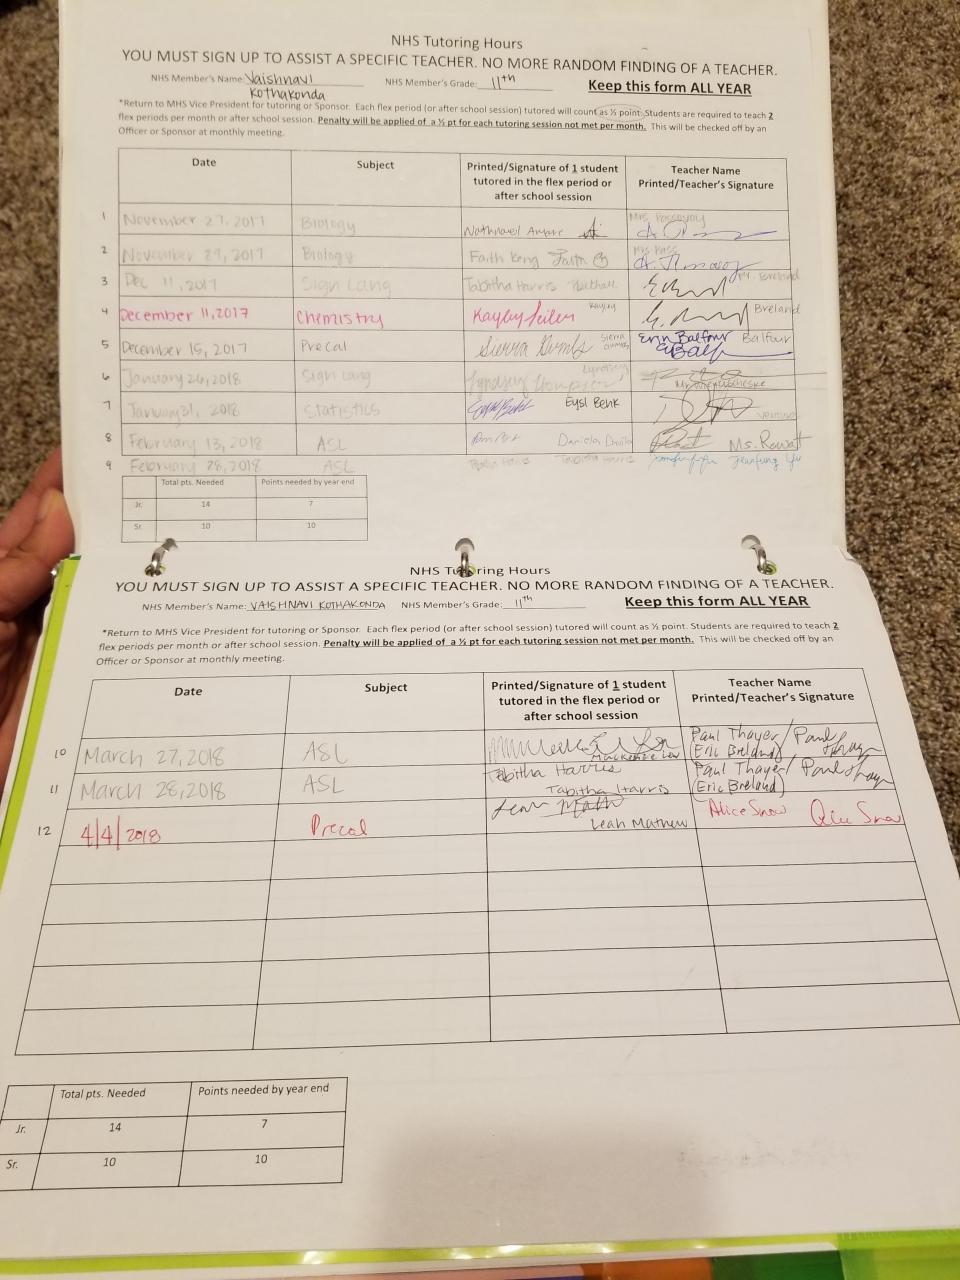 NHS Tutoring Hours
YOU MUST SIGN UP TO ASSIST A SPECIFIC TEACHER. NO MORE RANDOM FINDING OF A TEACHER.
NHS Member's Name: Vaishnavi Kothakonda NHS Member's Grade: 11th Keep this form ALL YEAR
*Return to MHS Vice President for tutoring or Sponsor. Each flex period (or after school session) tutored will count as ½ point. Students are required to teach 2
flex periods per month or after school session. Penalty will be applied of a ½ pt for each tutoring session not met per month. This will be checked off by an
Officer or Sponsor at monthly meeting.
Date Subject Printed/Signature of 1 student tutored in the flex period or after school session Teacher Name Printed/Teacher's Signature
1 November 27, 2017 Biology
2 November 29, 2017 Biology Faith Keng Faith
3 Dec 11, 2017 Sign Lang Tabitha Harris Mr. Breland
4 December 11, 2017 Chemistry Kayley Kayley Breland
5 December 15, 2017 Precal Sierra Sierra Erin Balfour Balfour
6 January 26, 2018 Sign Lang Lyndsey
7 January 31, 2018 Statistics Eysl Behk
8 February 13, 2018 ASL Daniela Ms. Rowat
9 February 28, 2018 ASL Tabitha Harris Tabitha Harris
Total pts. Needed Points needed by year end
Jr. 14 7
Sr. 10 10
NHS Tutoring Hours
YOU MUST SIGN UP TO ASSIST A SPECIFIC TEACHER. NO MORE RANDOM FINDING OF A TEACHER.
NHS Member's Name: VAISHNAVI KOTHAKONDA NHS Member's Grade: 11th Keep this form ALL YEAR
*Return to MHS Vice President for tutoring or Sponsor. Each flex period (or after school session) tutored will count as ½ point. Students are required to teach 2
flex periods per month or after school session. Penalty will be applied of a ½ pt for each tutoring session not met per month. This will be checked off by an
Officer or Sponsor at monthly meeting.
Date Subject Printed/Signature of 1 student tutored in the flex period or after school session Teacher Name Printed/Teacher's Signature
10 March 27, 2018 ASL Mackenzie Paul Thayer/ Paul Thayer (Eric Breland)
11 March 28, 2018 ASL Tabitha Harris Tabitha Harris Paul Thayer/ Paul Thayer (Eric Breland)
12 4/4/2018 Precal Leah Mathew Alice Snow
Total pts. Needed Points needed by year end
Jr. 14 7
Sr. 10 10